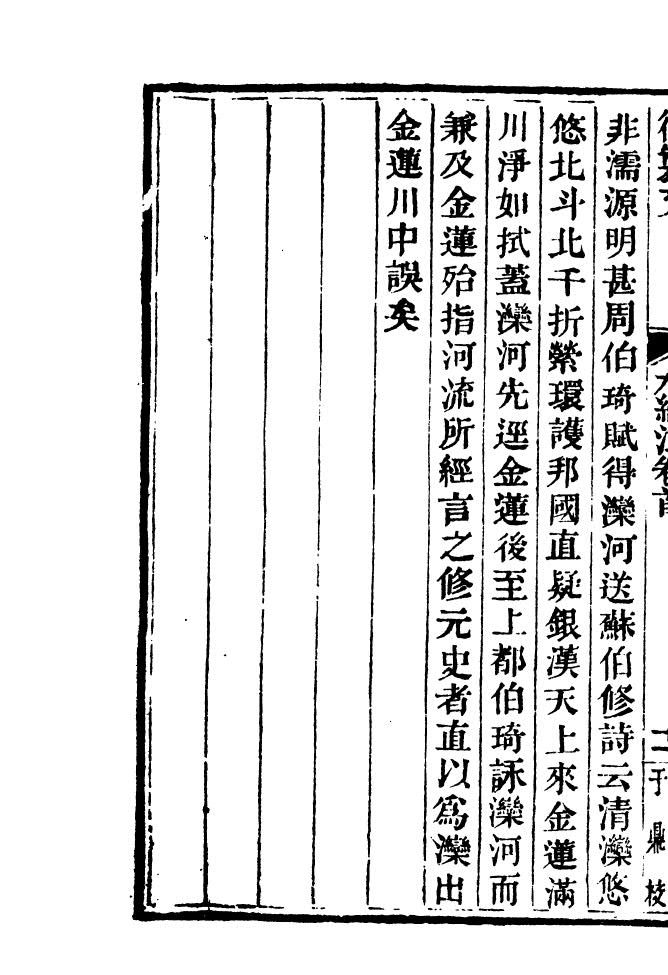 非濡源明甚周伯琦賦得灤河送蘇伯修詩云清灤悠
悠北斗北千折縈環護邦國直疑銀漢天上來金蓮滿
川淨如拭蓋灤河先逕金蓮後至上都伯琦詠灤河而
兼及金蓮殆指河流所經言之修元史者直以爲灤出
金蓮川中誤矣